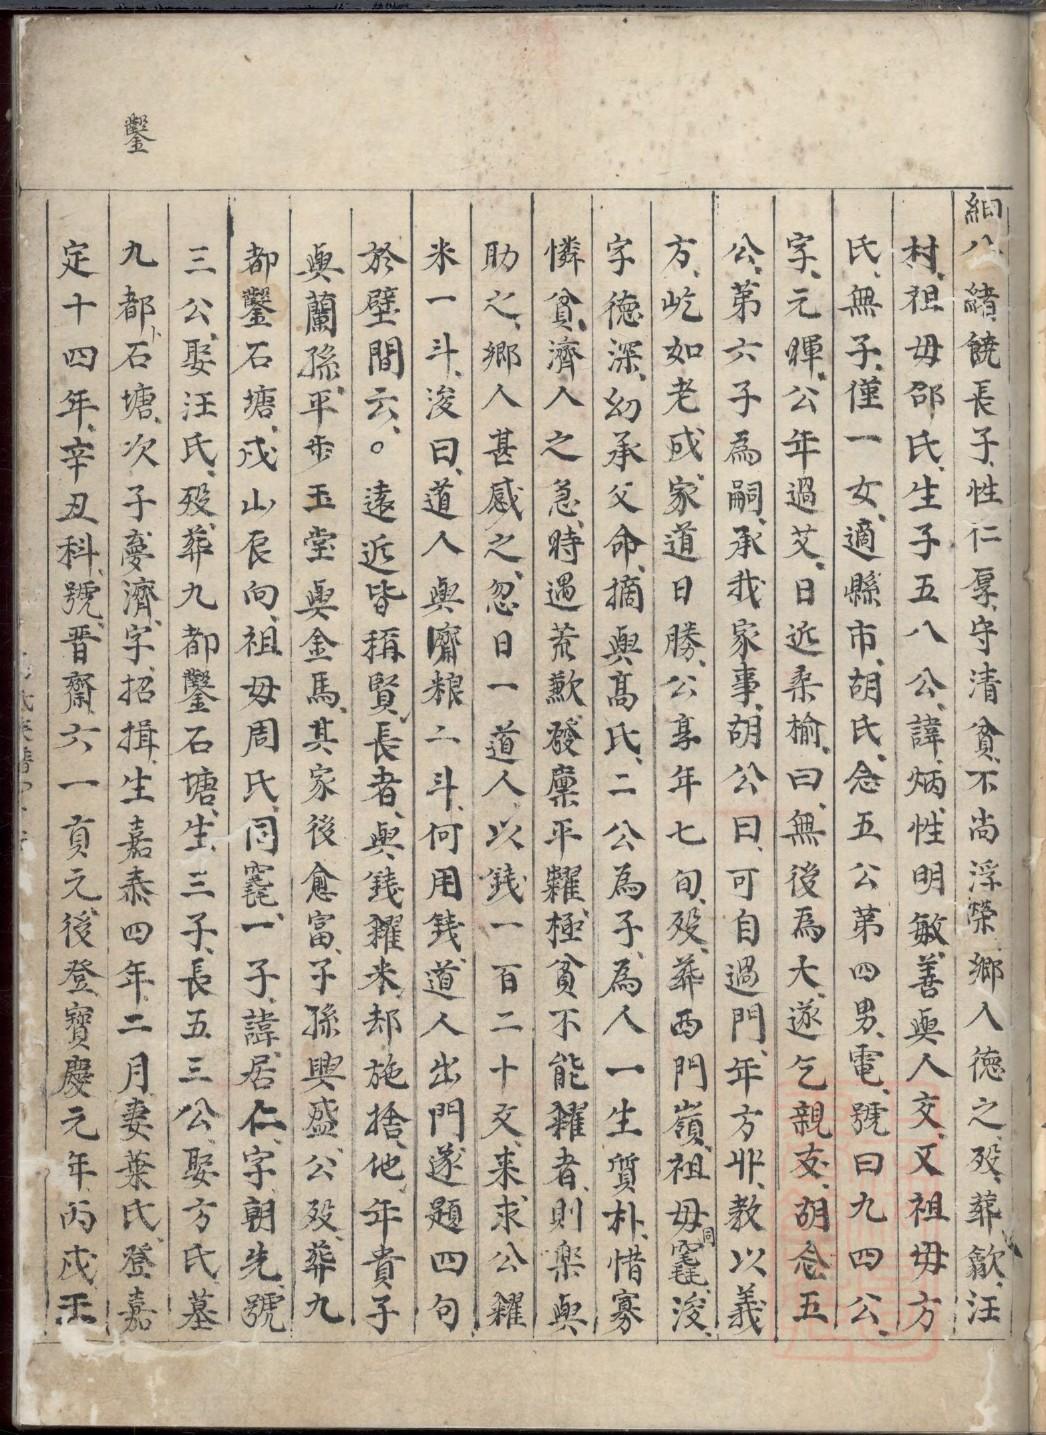 鑿
細八緒饒長子、性仁厚、守清貧、不尚浮榮、鄉人德之、歿、葬歙、汪
村、祖毋邵氏、生子五八公、諱炳、性明敏、善與人交、又祖毋方
氏、無子、僅一女、適縣市、胡氏、念五公第四男、電、號曰九四公、
字、元暉、公年過艾、日近桑榆、曰、無後為大、遂乞親友、胡念五
公、第六子為嗣、承我家事、胡公曰、可自過門、年方丱、教以義
方、屹如老成、家道日勝、公享年七旬、歿、葬西門嶺、祖毋同窀、浚、
字德深、幼承父命、摘與高氏、二公為子、為人一生質朴、惜寡
憐貧、濟人之急、時遇荒歉、發廩平糶、極貧不能糴者、則樂與
助之、鄉人甚感之、忽日一道人、以錢一百二十文、来求公糴
米一斗、浚曰、道人與齋粮二斗、何用錢、道人出門、遂題四句
於壁間云、○遠近皆稱賢、長者、與錢糴米、却施捨、他年貴子
與蘭孫、平步玉堂與金馬、其家後愈富、子孫興盛、公歿、葬九
都鑿石塘、戌山辰向、祖毋周氏、同窀、一子、諱、居仁、字朝先、號
三公、娶汪氏、歿、葬九都鑿石塘、生、三子、長五三公、娶方氏、墓
九都小石塘、次子夢濟、字、招揖、生嘉泰四年、二月、妻葉氏、登嘉
定十四年、辛丑科、號、晋齋、六一貢元、後登寶慶元年丙戌王